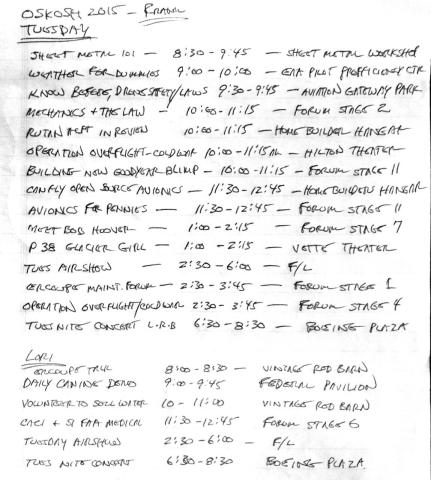 OSKOSH 2015 - FRANK
TUESDAY
SHEET METAL 101 - 8:30 - 9:45 - SHEET METAL WORKSHOP
WEATHER FOR DUMMIES 9:00 - 10:00 - EAA PILOT PROFFICIENCY CTR
KNOW BEFORE, DRONE SAFETY/LAWS 9:30 - 9:45 - AVIATION GATEWAY PARK
MECHANICS + THE LAW - 10:00 - 11:15 - FORUM STAGE 2
RUTAN ACFT IN REVIEW 10:00 - 11:15 - HOME BUILDER HANGAR
OPERATION OVERFLIGHT - COLDWAR 10:00 - 11:15 - HILTON THEATER
BUILDING NEW GOODYEAR BLIMP - 10:00 - 11:15 - FORUM STAGE 11
CANFLY OPEN SOURCE AVIONICS - 11:30 - 12:45 - HOMEBUILDERS HANGAR
AVIONICS FOR PENNIES - 11:30 - 12:45 - FORUM STAGE 11
MEET BOB HOOVER - 1:00 - 2:15 - FORUM STAGE 7
P 38 GLACIER GIRL - 1:00 - 2:15 - VETTE THEATER
TUES AIRSHOW - 2:30 - 6:00 - F/L
ERCOUPE MAINT. FORUM - 2:30 - 3:45 - FORUM STAGE 1
OPERATION OVERFLIGHT/COLDWAR 2:30 - 3:45 - FORUM STAGE 4
TUES NITE CONCERT L.R.B 6:30 - 8:30 - BOEING PLAZA
LORI
ERCOUPE TALK 8:00 - 8:30 - VINTAGE RED BARN
DAILY CANINE DEMO 9:00 - 9:45 FEDERAL PAVILION
VOLUNTEER TO SELL WATER 10 - 11:00 VINTAGE RED BARN
+ SI FAA MEDICAL 11:30 - 12:45 FORUM STAGE 6
TUESDAY AIRSHOW 2:30 - 6:00 - F/L
TUES NITE CONCERT 6:30 - 8:30 BOEING PLAZA